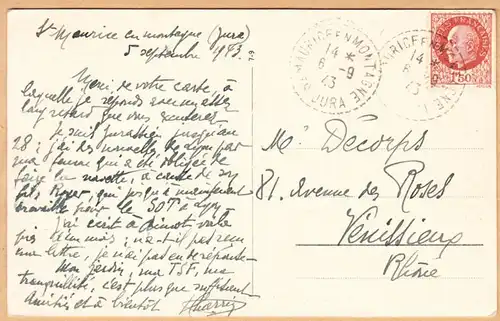 St Maurice en montagne (Jura)
5 septembre 1943
Merci de votre carte, à
laquelle je réponds avec
retard que vous excuserez.
Je suis Jurassien jusqu'au
28; j'ai des nouvelles de Lyon par
ma femme qui a été obligée de
faire la navette, à cause de
fils Roger, qui jusqu'à maintenant
travaille pour le SOT à Lyon
J'ai écrit à
fois
ma lettre, je n'ai pas eu de réponse.
Mon jardin, ma TSF, ma
tranquillité, c'est plus que suffisant
Amitiés et à bientôt
ST MAURICE EN MONTAGNE
14 *
6 -9
43
JURA
MAURICE EN MONTAGNE
14 *
6
43
POSTES FRANÇAISES
1F50
M. Decorps
81. Avenue des Roses
Venissieux
Rhône